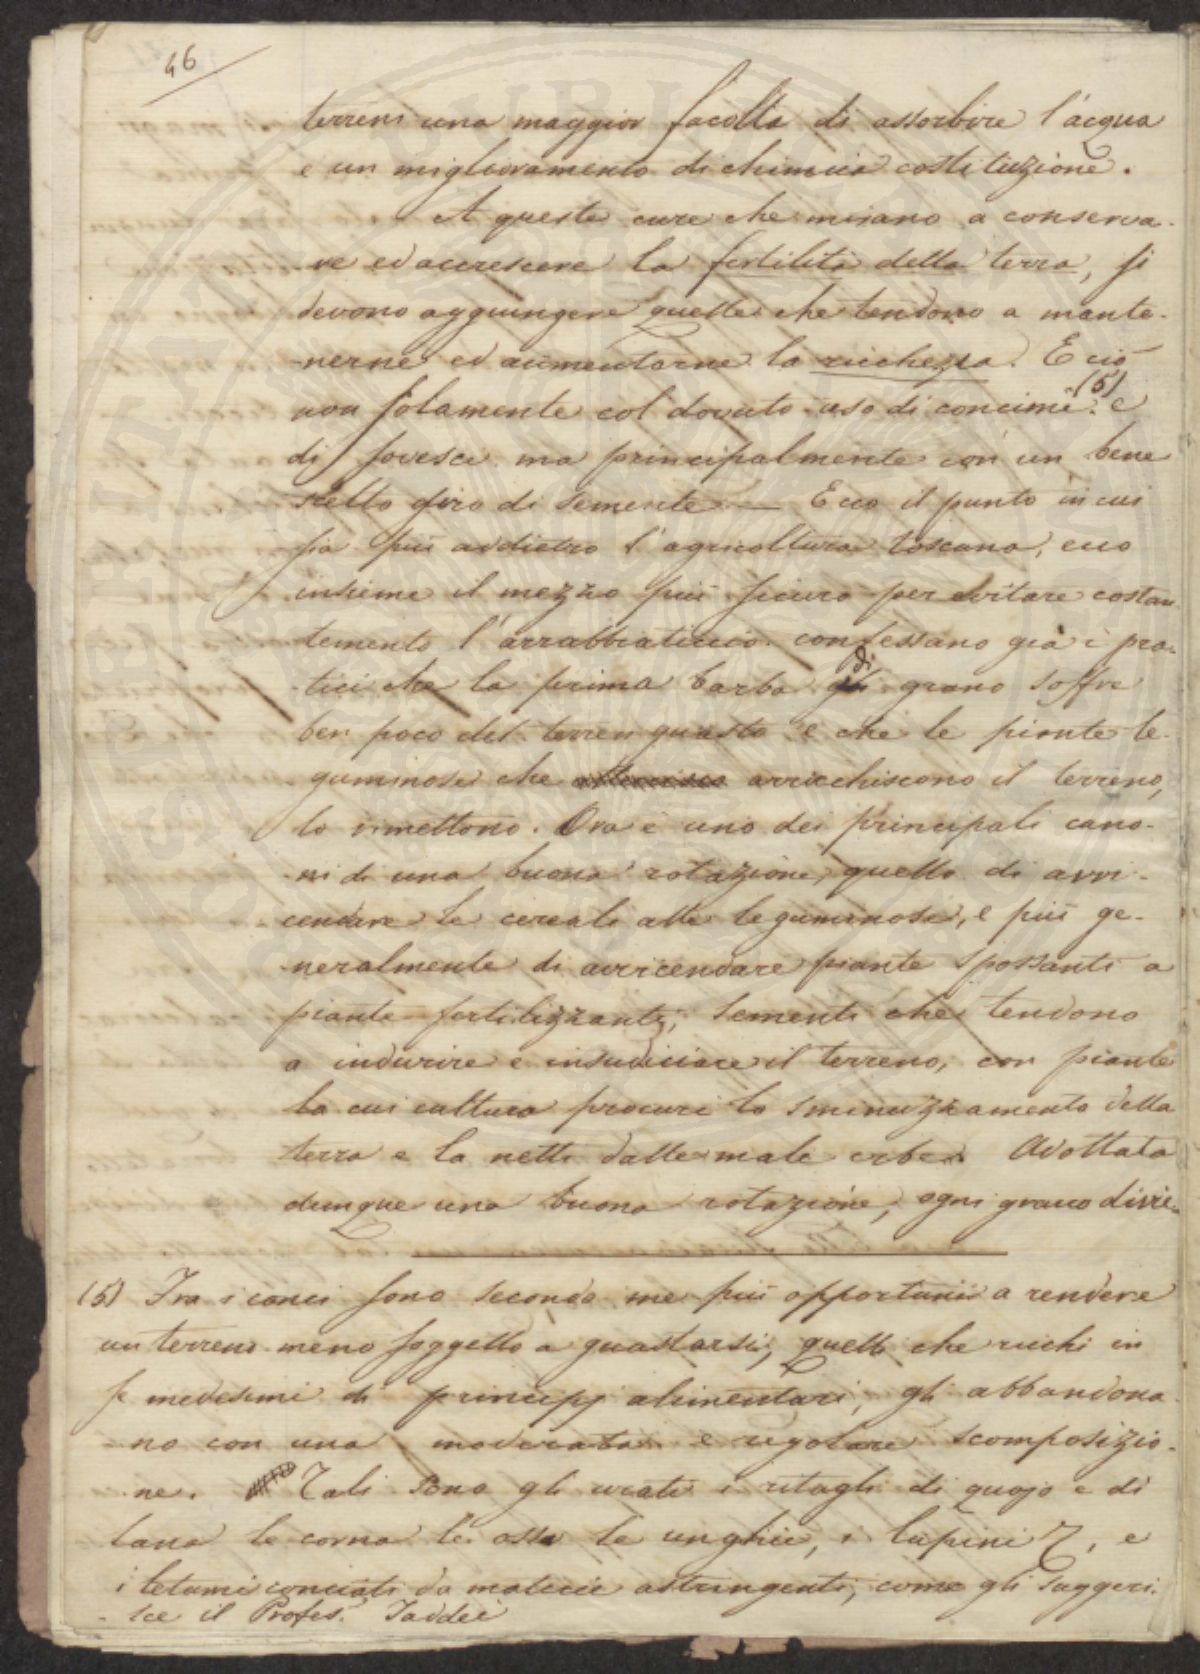 46
terreni una maggior facoltà di assorbire l'acqua
e un miglioramento di chimica costituzione.
A queste cure che mirano a conserva-
-re ed accrescere la fertilità della terra, si
devono aggiungere quelle che tendono a mante-
-nerne ed aumentarne la ricchezza. E ciò
non solamente col dovuto uso di concimi (5) e
di sovesci ma principalmente con un bene
scelto giro di semente — Ecco il punto in cui
sia più addietro l'agricoltura toscana, ecco
insieme il mezzo più sicuro per evitare costan
temente l'arrabbiaticcio. confessano già i pra-
-tici che la prima barba di grano soffre
ben poco del terren guasto e che le piante le-
guminose che arricchiscono il terreno,
lo rimettono. Ora è uno dei principali cano-
-ni di una buona rotazione, quello di avvi-
cendare le cereali alle leguminose, e più ge-
neralmente di avvicendare piante spossanti a
piante fertilizzanti, sementi che tendono
a indurire e insudiciare il terreno, con piante
la cui cultura procuri lo sminuzzamento della
terra e la netti dalle male erbe. Adottata
dunque una buona rotazione, ogni grano divie-
(5) Tra i conci sono secondo me più opportuni a rendere
un terreno meno soggetto a guastarsi, quelli che ricchi in
se medesimi di principj alimentari, gli abbandona
no con una moderata e regolare scomposizio-
-ne. Tali sono gli urati i ritagli di quojo e di
lana le corna le ossa le unghie, i lupini &, e
i letami conciati da materie astringenti, come gli suggeri-
-sce il Profes. Taddei